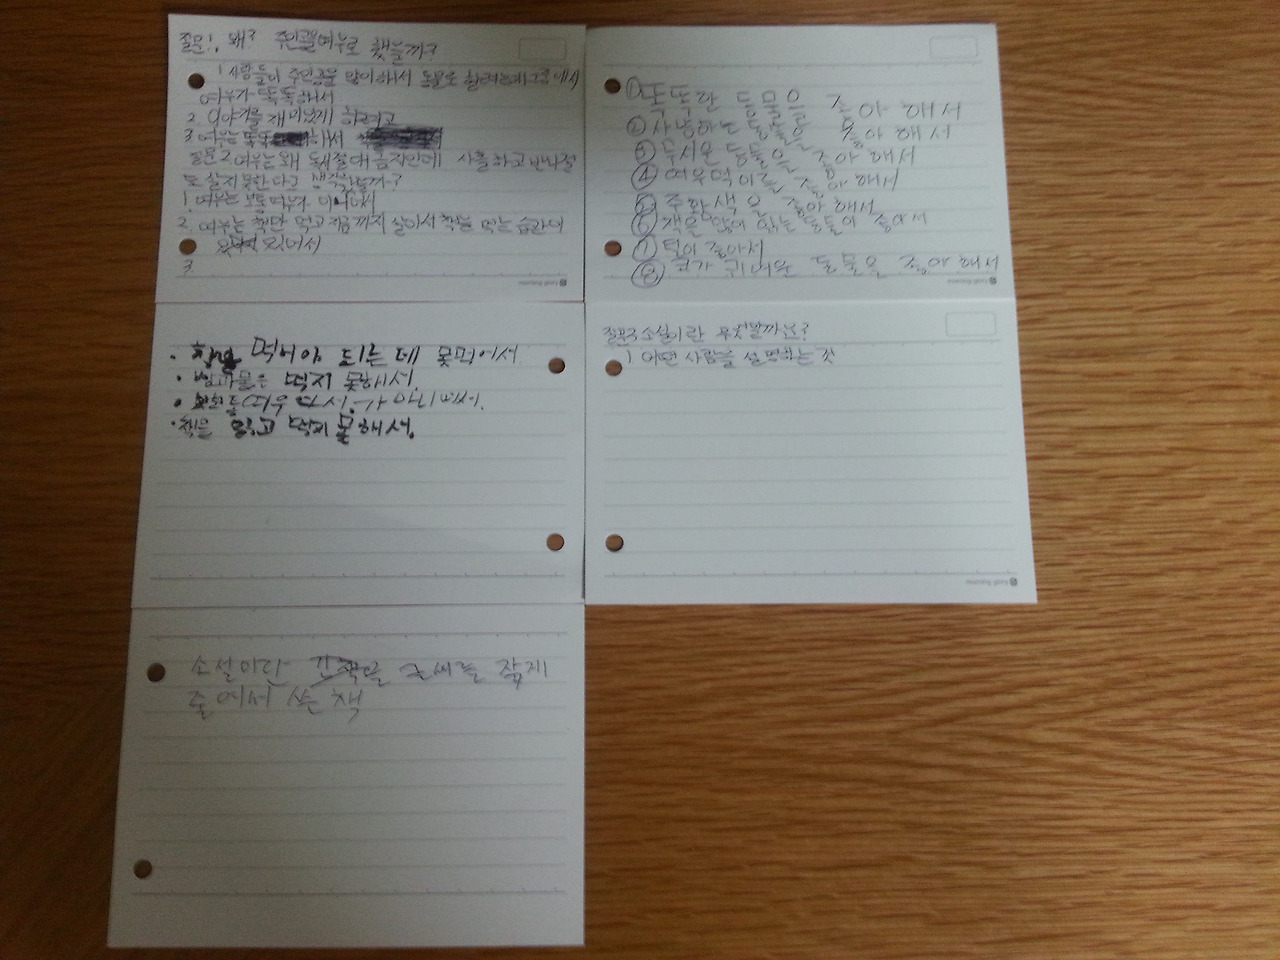 질문1. 왜? 주인공 여우로 했을까?
1 사람들이 주인공을 많이해서 동물로 할려는데 그중에서
여우가 똑똑해서
2. 이야기를 재미있게 하려고
3 여우는 똑똑 해서
질문2 여우는 왜 독서절대금지인데 사흘하고 반나절
도 살지 못한다고 생각할까?
1. 여우는 보통여우가 아니여서
2. 여우는 책만 먹고 지금까지 살아서 책을 먹는 습관이
있어서
3
① 똑똑한 동물을 좋아해서
② 사냥하는 동물을 좋아해서
③ 무서운 동물을 좋아해서
④ 여우먹이를 좋아해서
⑤ 주황색을 좋아해서
⑥ 책을 많이 읽는 동물이 좋아서
⑦ 털이 좋아서
⑧ 코가 귀여운 동물을 좋아해서
· 먹어야 되는데 못먹어서
· 밥과물은 먹지 못해서.
· 여우 아니여서.
· 책을 읽고 먹지 못해서.
질문3 소설이란 무엇일까요?
1 어떤 사람을 설명하는 것
소설이란 글씨를 작게
줄에서 쓴 책